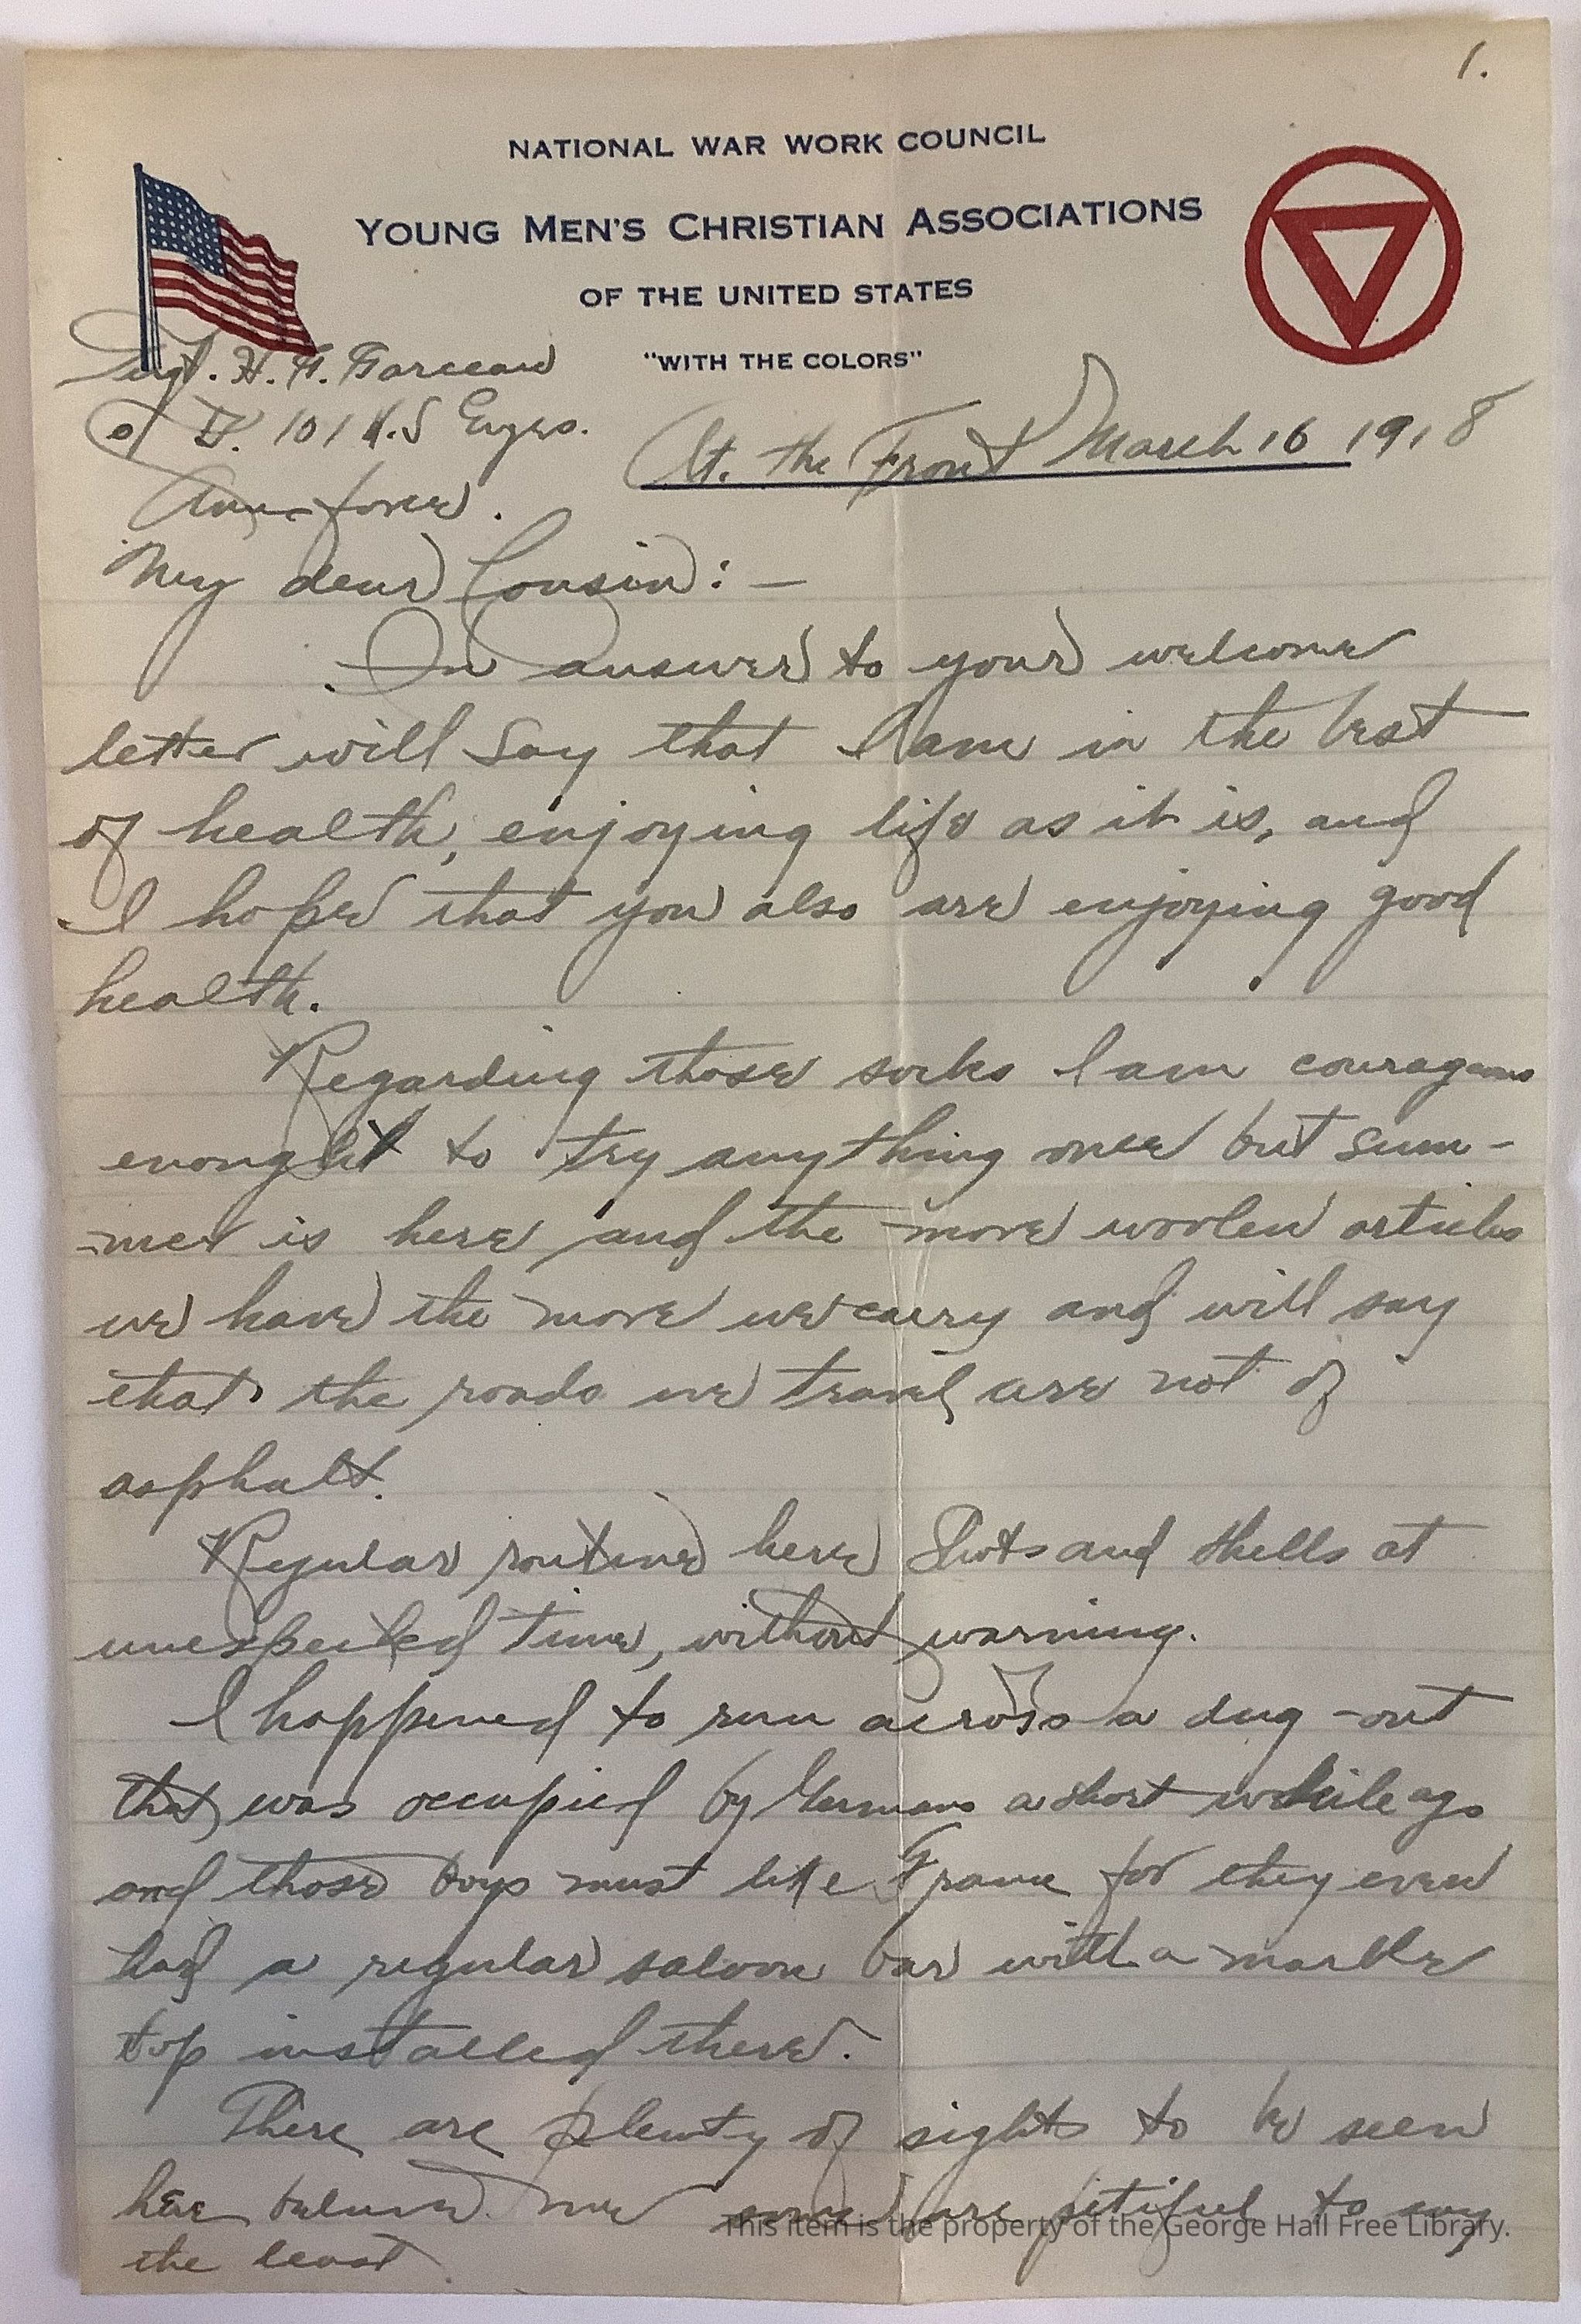 1.
NATIONAL WAR WORK COUNCIL
YOUNG MEN'S CHRISTIAN ASSOCIATIONS
OF THE UNITED STATES
"WITH THE COLORS"
Sergt. H. F.
Co D. 101 U.S Engrs.
At. the Front March 16 1918
Am. forces.
My dear Cousin: —
In answer to your welcome
letter will say that I am in the best
of health, enjoying life as it is, and
I hope that you also are enjoying good
health.
Regarding those socks I am courageous
enought to try anything once but sum-
-mer is here and the more woolen articles
we have the more we carry and will say
that the roads we travel are not of
asphalt.
Regular routine here Shots and shells at
unexpected time, without warning.
I happened to run across a dug-out
that was occupied by Germans a short while ago
and those boys must like France for they even
had a regular saloon bar with a marble
top installed there.
There are plenty of sights to be seen
here believe me some are pitiful to say
the least.
This item is the property of the George Hall Free Library.